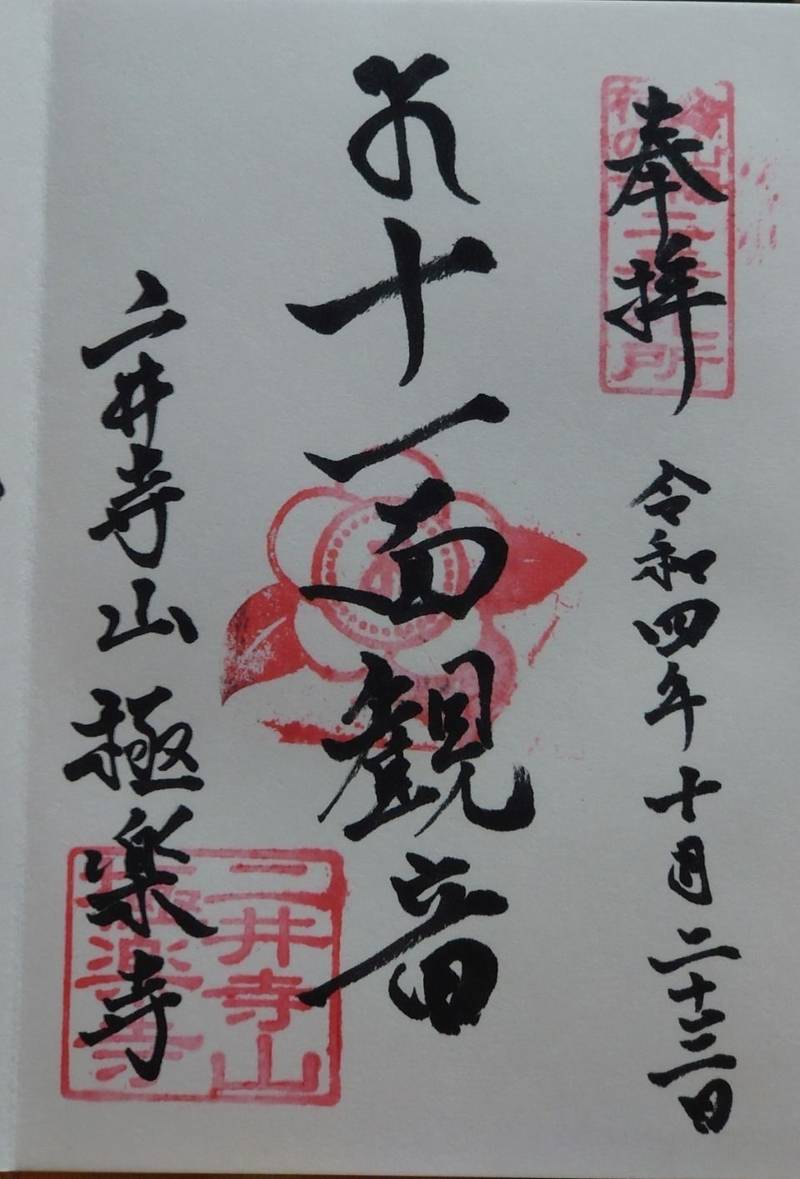 奉拝
令和四年十月二十三日
十一面観音
二井寺山 極楽寺
二井寺山
極楽寺